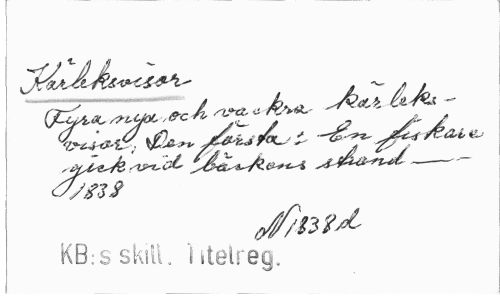 Kärleksvisor
Fyra nya och vackra kärleks-
visor; Den första: En fiskare
gick vid bäckens strand ——
1838
N 1838 d
KB:s skill. Titelreg.